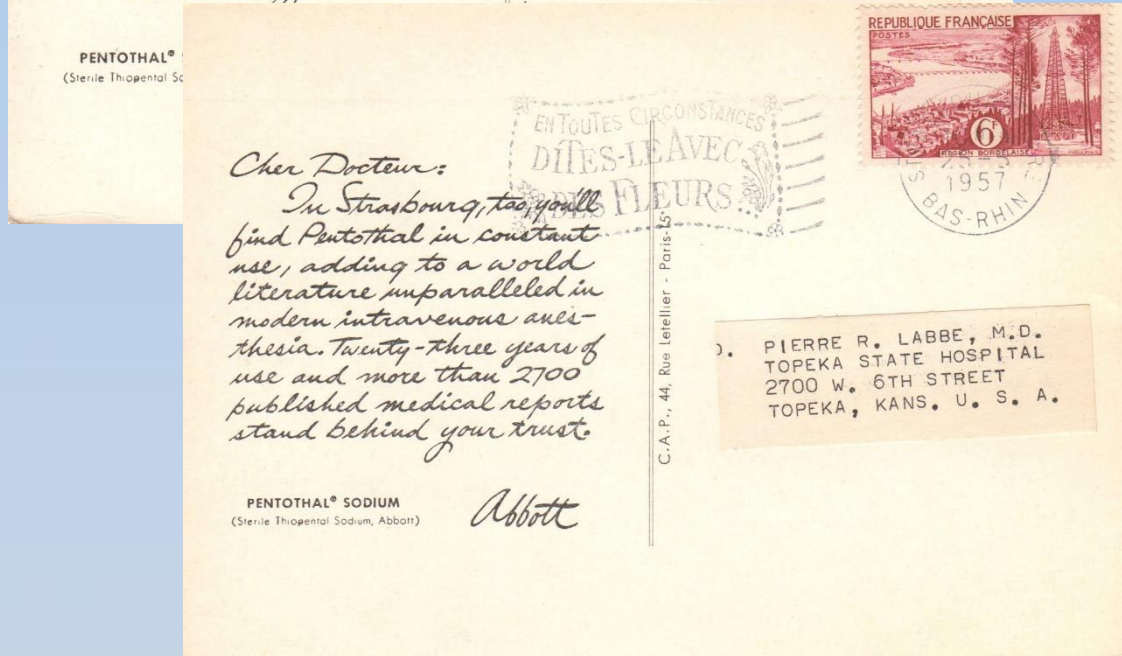 PENTOTHAL®
(Sterile Thiopental
REPUBLIQUE FRANÇAISE
POSTES
6F
REGION BORDELAISE
EN TOUTES CIRCONSTANCES
DITES-LE AVEC
DES FLEURS
1957
BAS-RHIN
Cher Docteur:
In Strasbourg, too, you'll
find Pentothal in constant
use, adding to a world
literature unparalleled in
modern intravenous anes-
thesia. Twenty-three years of
use and more than 2700
published medical reports
stand behind your trust.
PENTOTHAL® SODIUM
(Sterile Thiopental Sodium, Abbott)
Abbott
C.A.P., 44, Rue Letellier - Paris-15e
D. PIERRE R. LABBE, M.D.
TOPEKA STATE HOSPITAL
2700 W. 6TH STREET
TOPEKA, KANS. U. S. A.